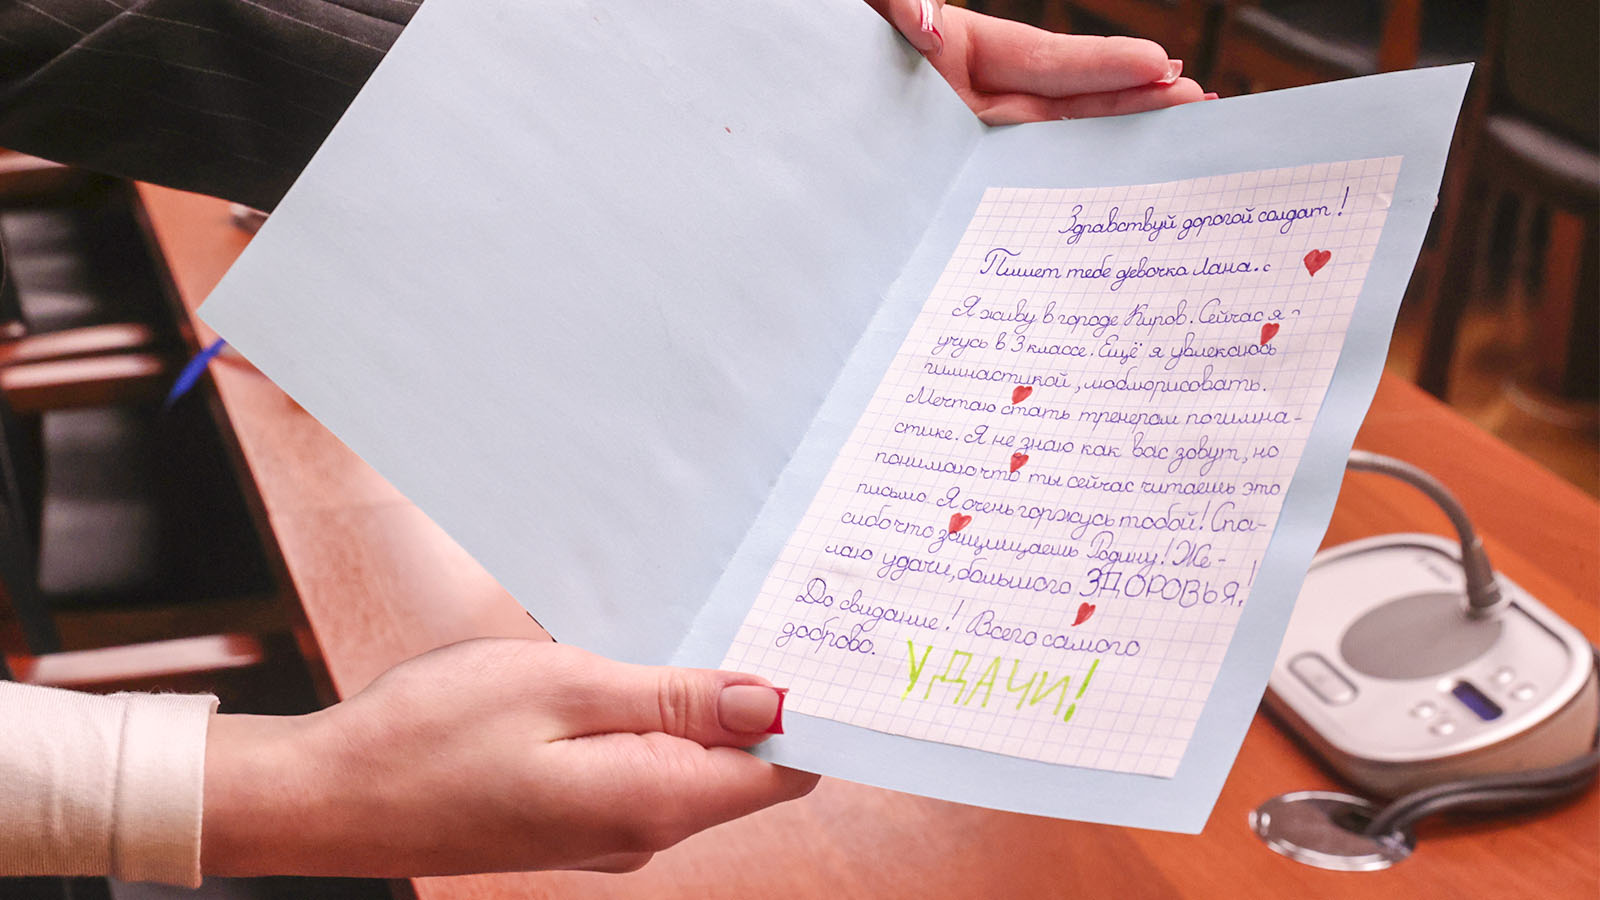 Здравствуй дорогой солдат!
Пишет тебе девочка Лана.с
Я живу в городе Киров. Сейчас я
учусь в 3 классе. Ещё я увлекаюсь
гимнастикой, люблю рисовать.
Мечтаю стать тренером по гимна-
стике. Я не знаю как вас зовут, но
понимаю что ты сейчас читаешь это
письмо. Я очень горжусь тобой! Спа-
сибо что защищаешь Родину! Же-
лаю удачи, большого ЗДОРОВЬЯ!
До свидание! Всего самого
доброво. УДАЧИ!